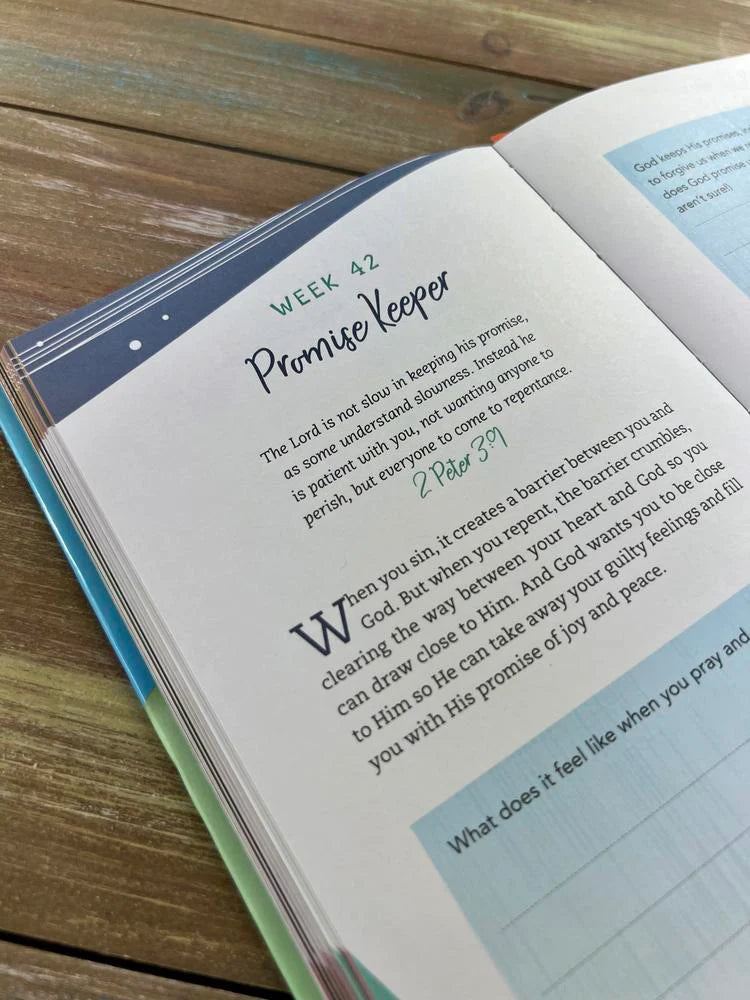 WEEK 42
Promise Keeper
The Lord is not slow in keeping his promise,
as some understand slowness. Instead he
is patient with you, not wanting anyone to
perish, but everyone to come to repentance.
2 Peter 3:9
When you sin, it creates a barrier between you and
God. But when you repent, the barrier crumbles,
clearing the way between your heart and God so you
can draw close to Him. And God wants you to be close
to Him so He can take away your guilty feelings and fill
you with His promise of joy and peace.
What does it feel like when you pray and
God keeps His promises,
to forgive us when we
does God promise
aren't sure!)